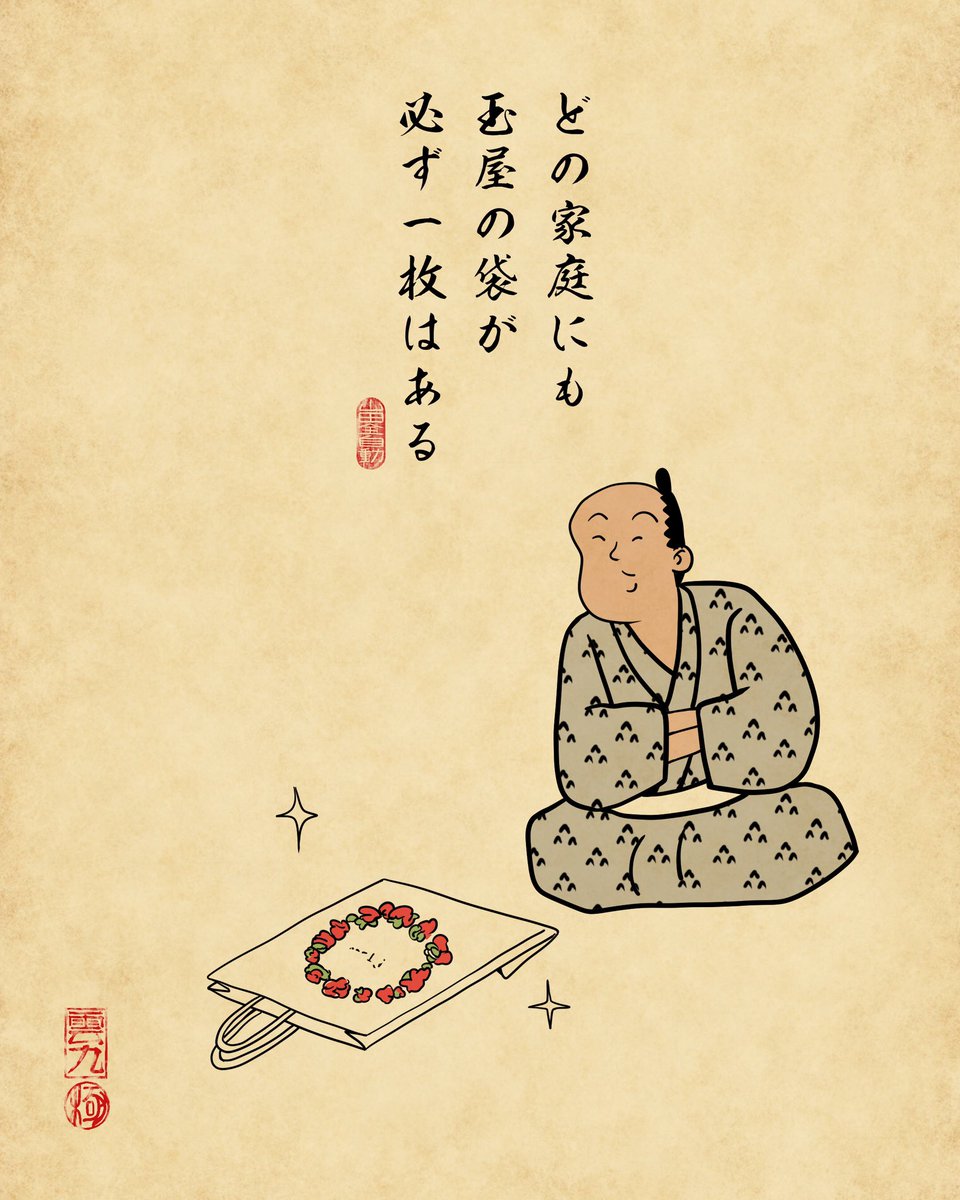 どの家庭にも
玉屋の袋が
必ず一枚はある